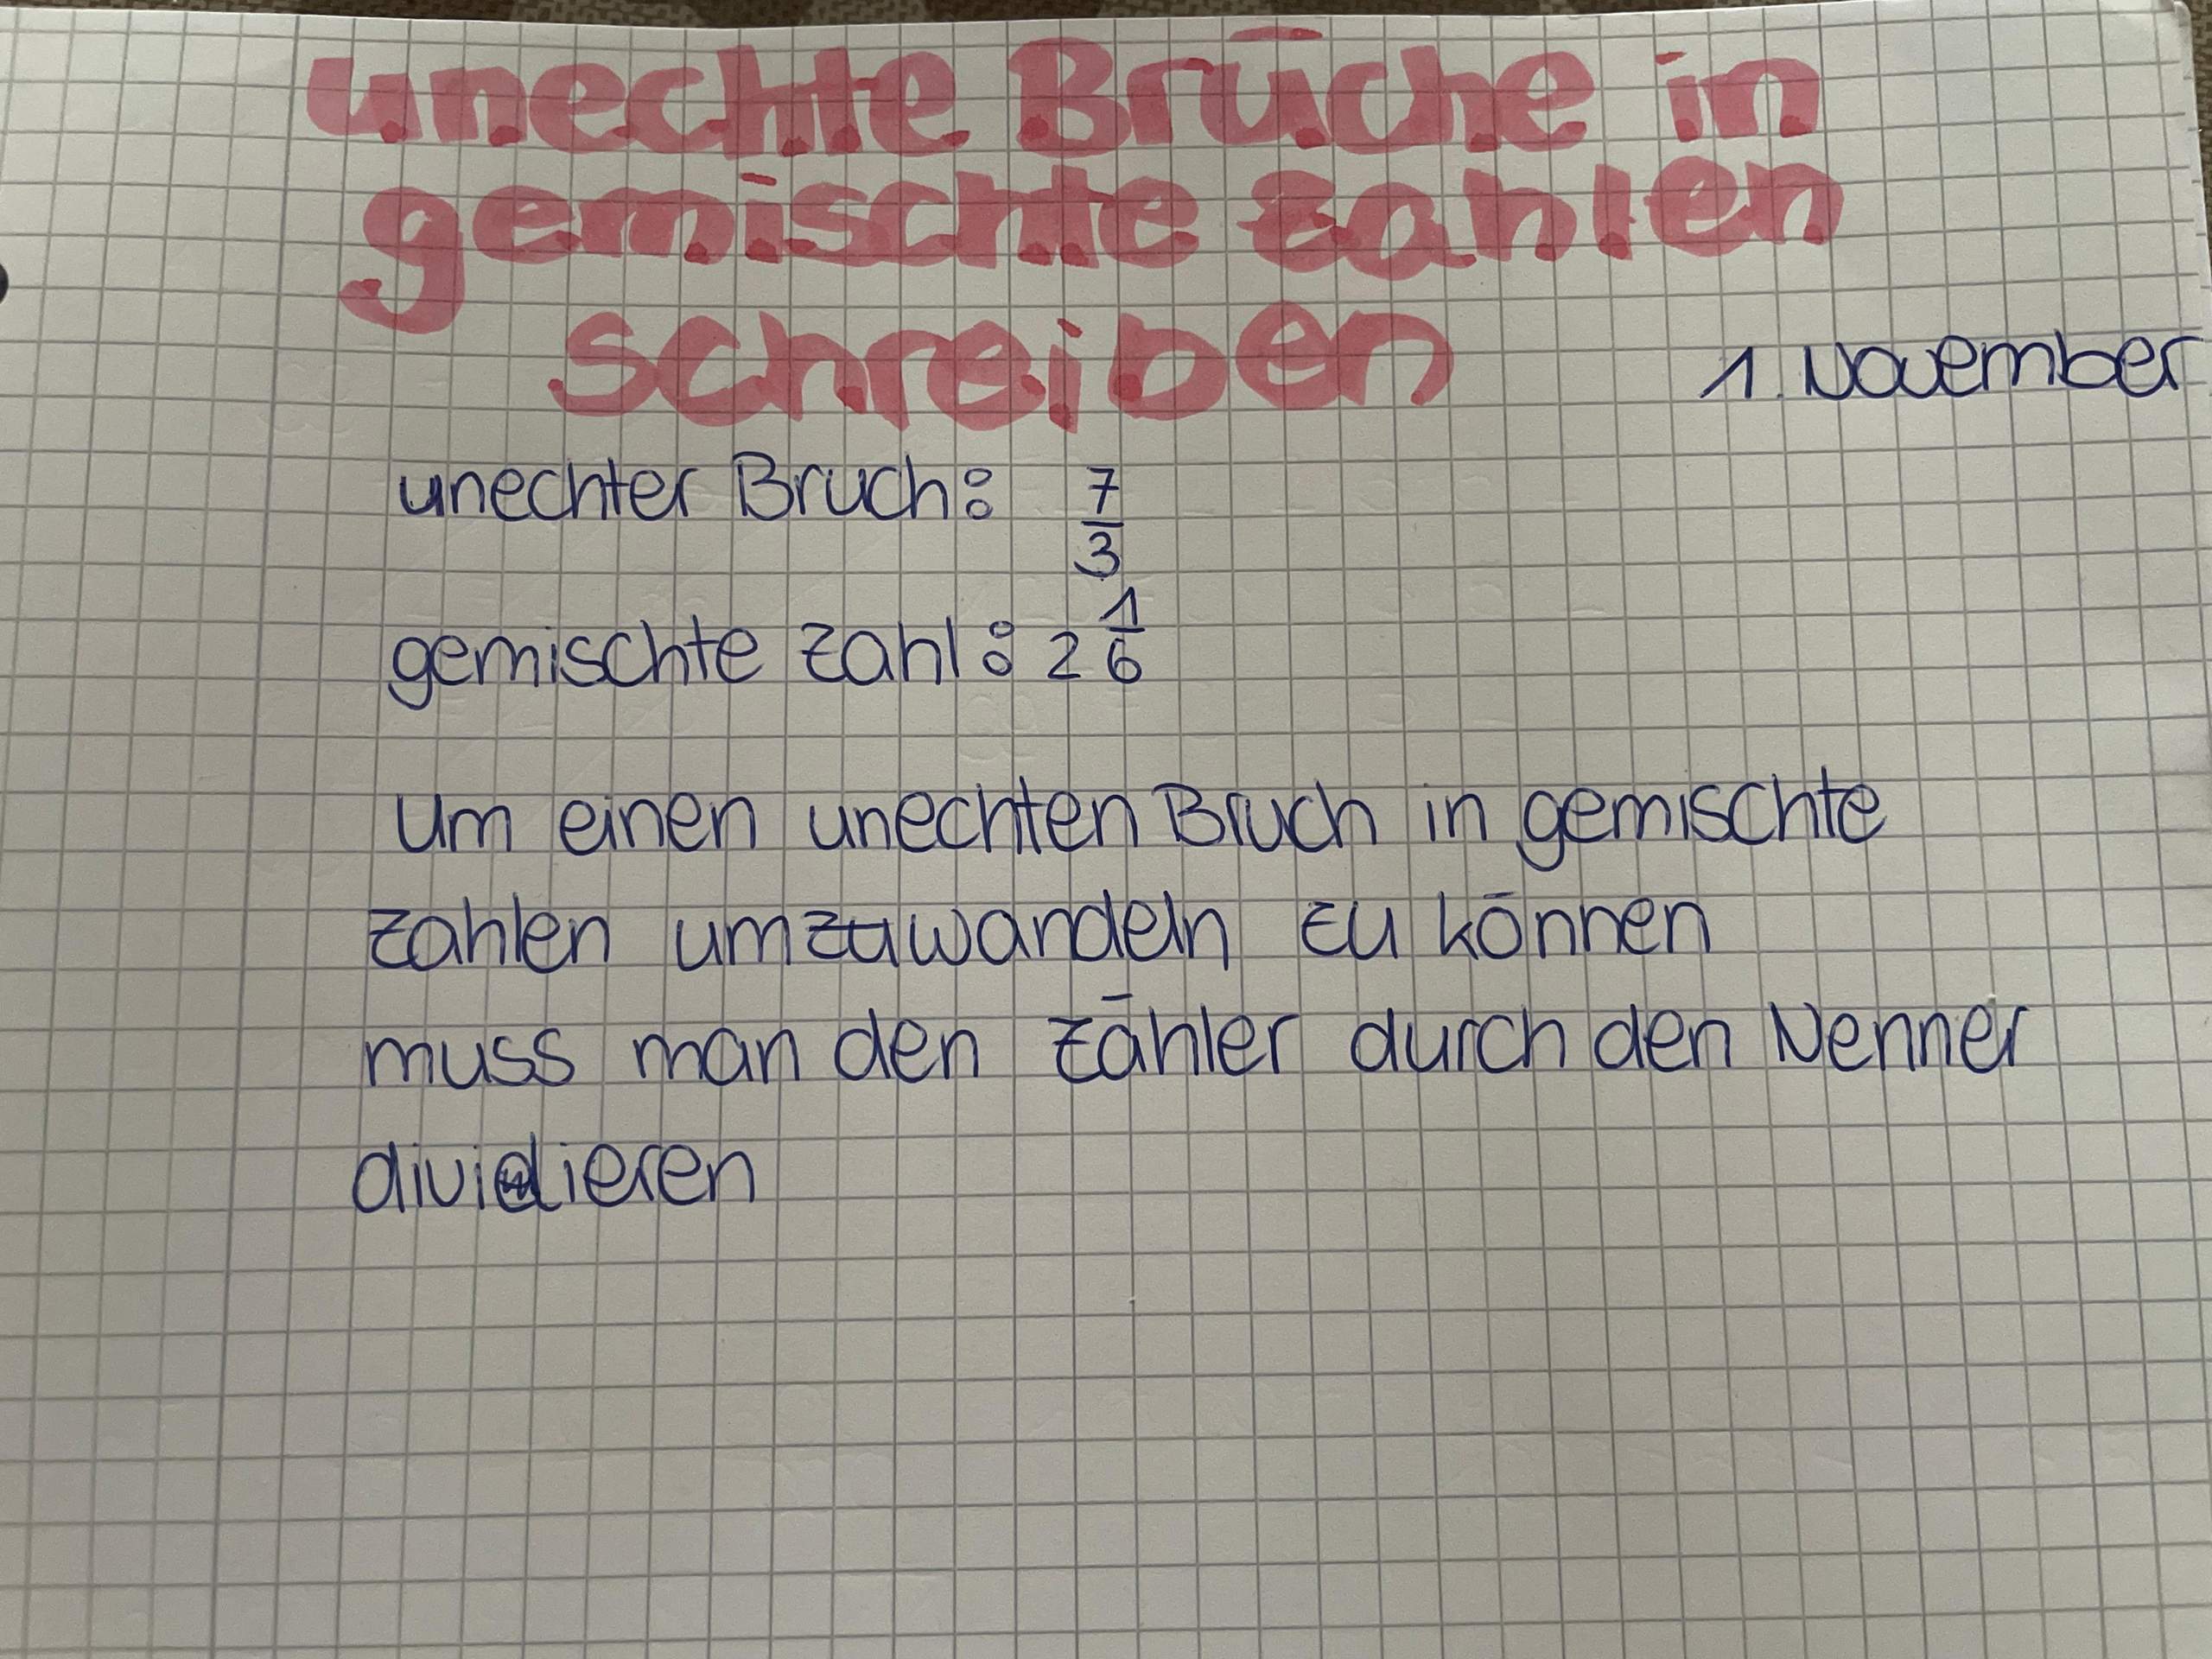 unechte Brüche in
gemischte zahlen
schreiben
1. November
unechter Bruch: 7/3
gemischte zahl: 2 1/6
um einen unechten Bruch in gemischte
zahlen umzuwandeln zu können
muss man den zähler durch den Nenner
dividieren